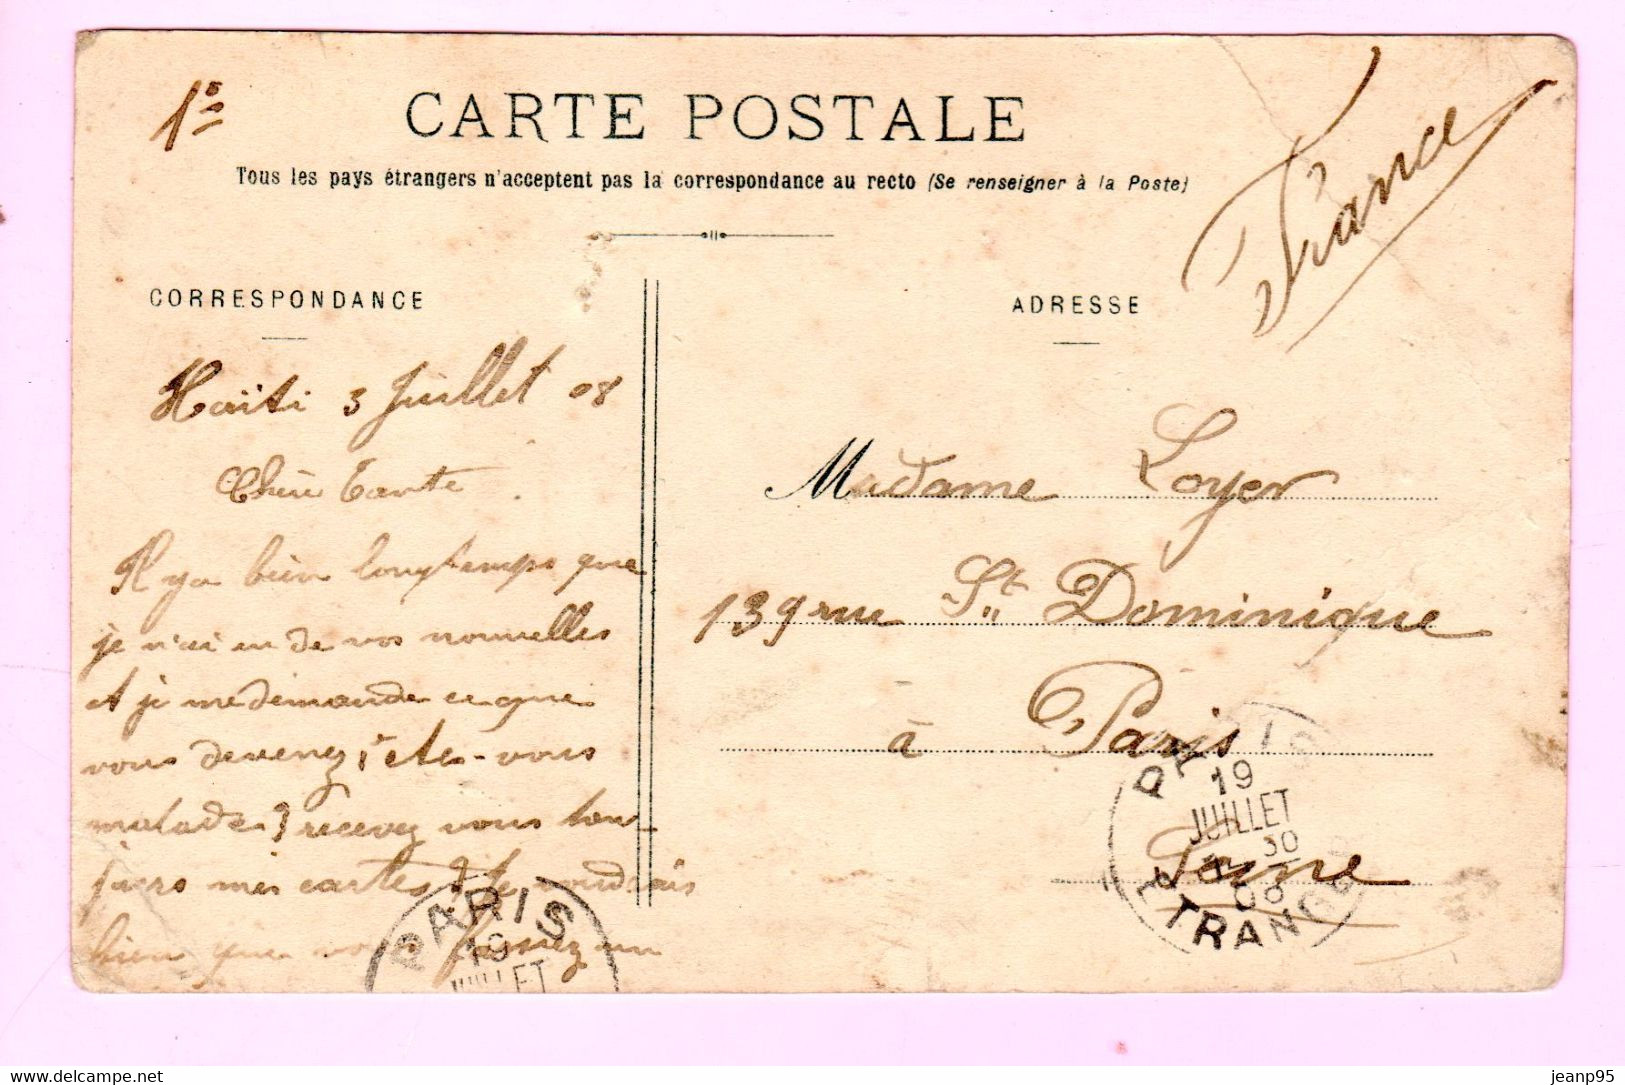 1º
CARTE POSTALE
Tous les pays étrangers n'acceptent pas la correspondance au recto (Se renseigner à la Poste)
France
CORRESPONDANCE
Haïti 3 Juillet 08
Chère tante
Il y a bien longtemps que
je n'ai eu de vos nouvelles
et je me demande ce que
vous devenez, êtes-vous
malade? recevez vous tou
jours mes cartes? Je voudrais
bien que vous fassiez un
ADRESSE
Madame Loyer
139 rue St Dominique
à Paris
Seine
PARIS
19
JUILLET
30
08
ETRANGER
PARIS
19
JUILLET
delcampe.net
jeanp95